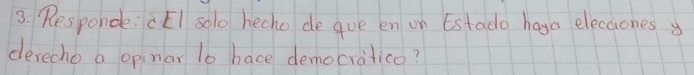 3. Responde: ¿El solo hecho de que en un Estado haya elecciones y
derecho a opinar lo hace democrático?